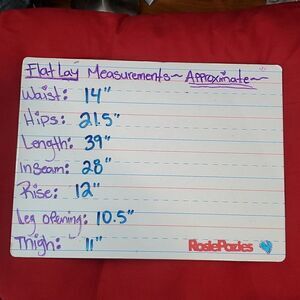 Flat Lay Measurements ~ Approximate ~
Waist: 14"
Hips: 21.5"
Length: 39"
Inseam: 28"
Rise: 12"
Leg opening: 10.5"
Thigh: 11"
RosiePozies